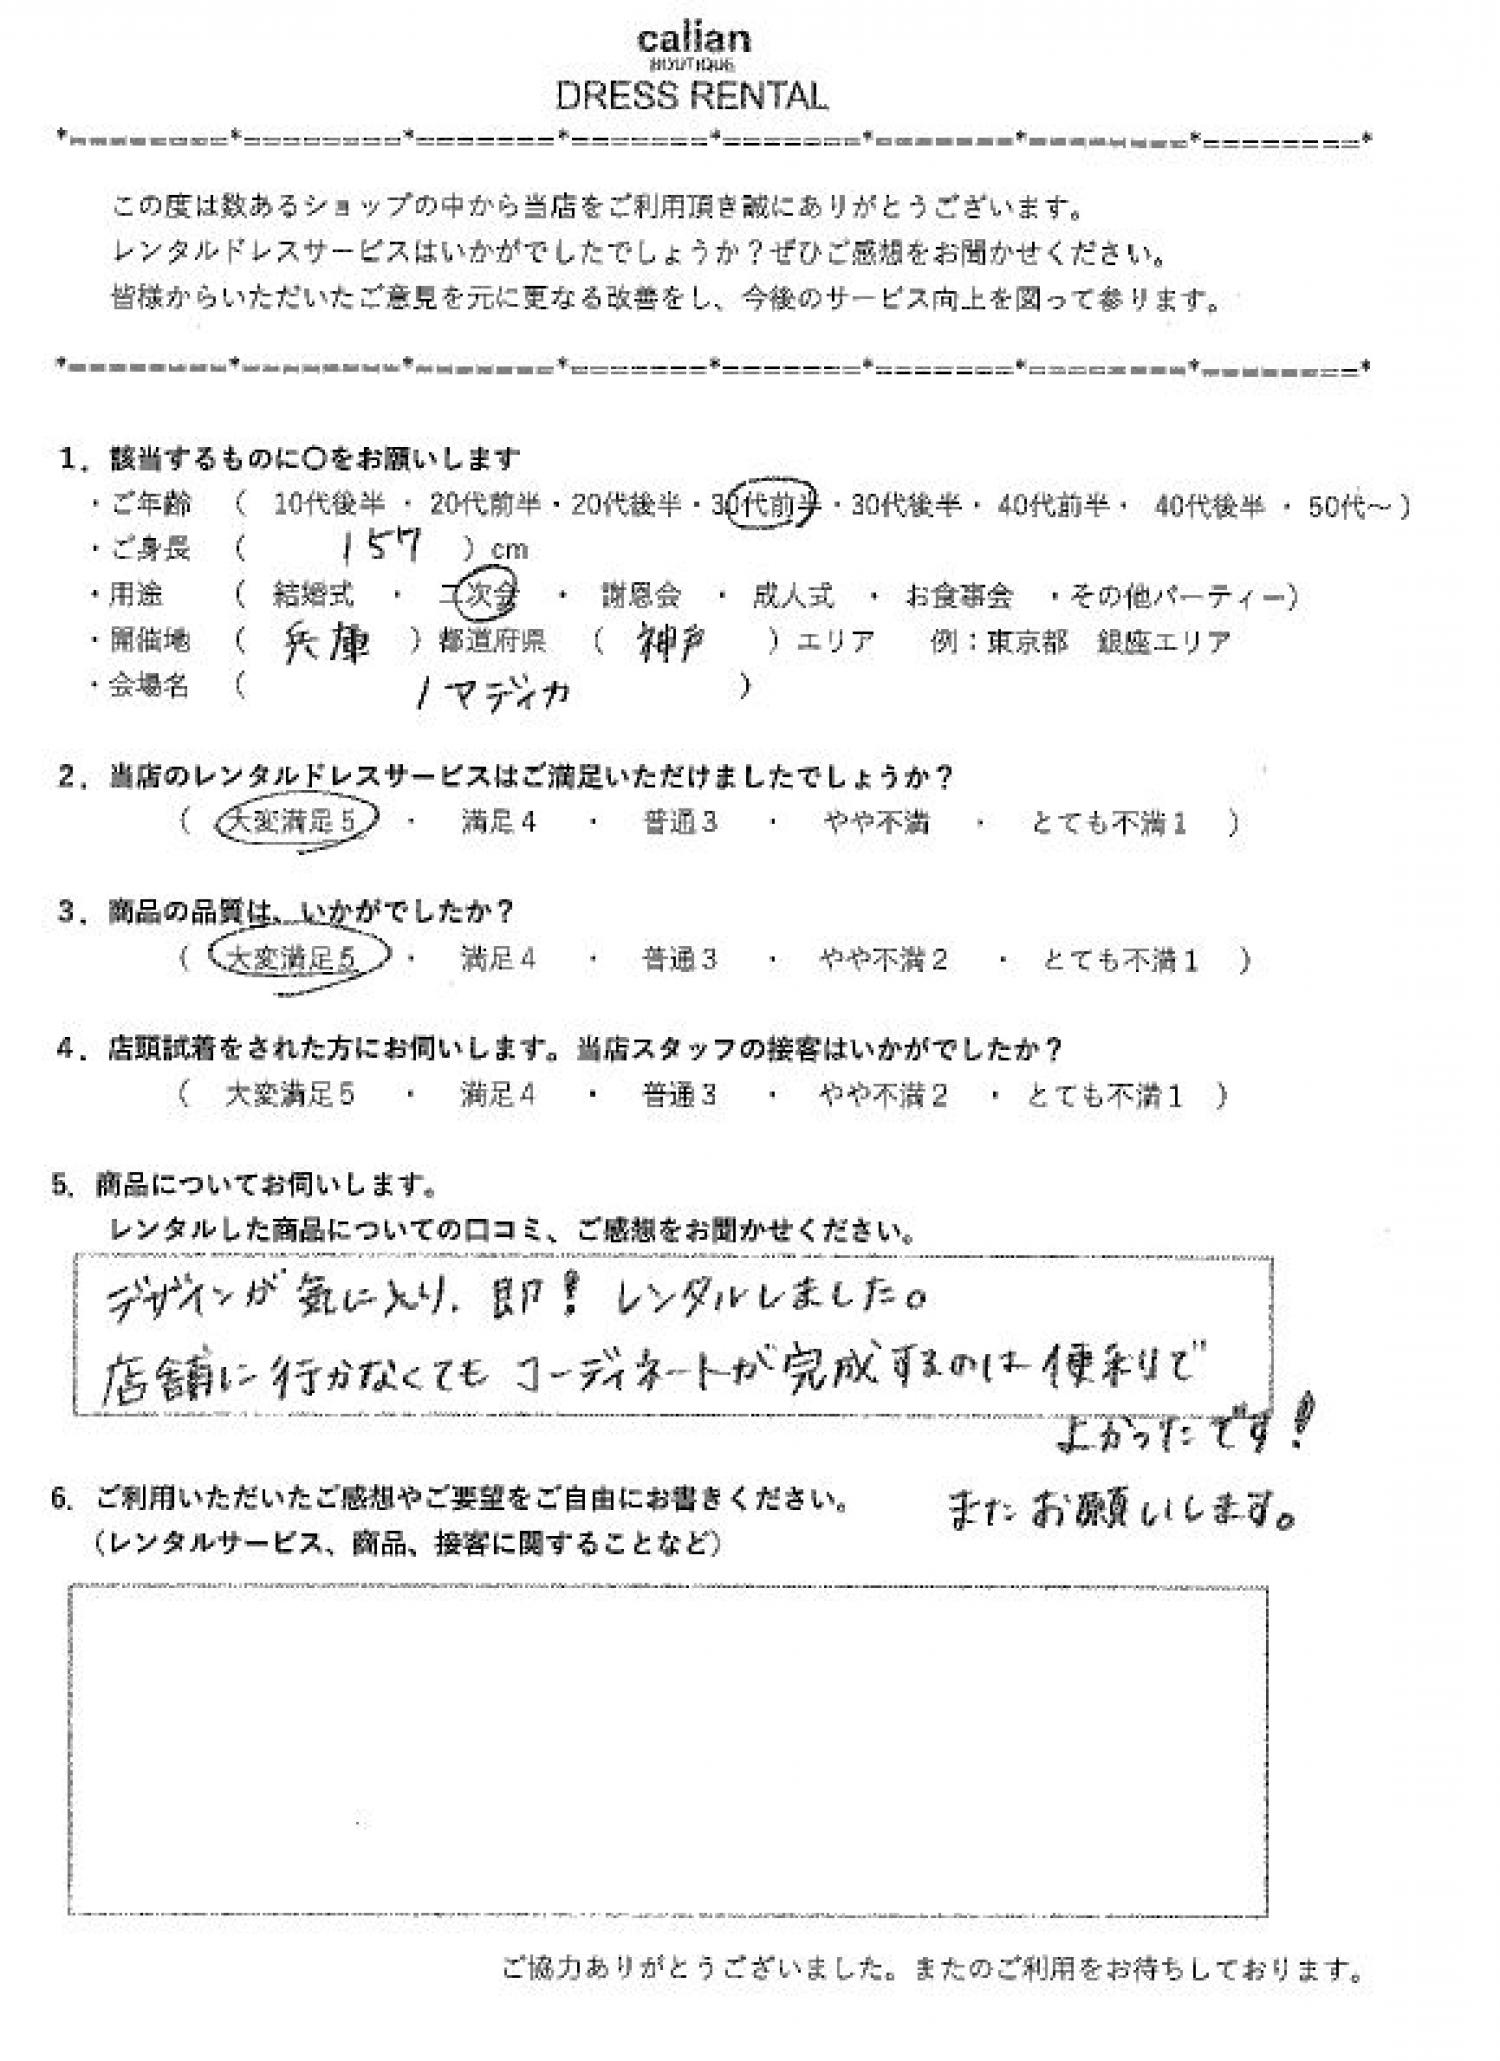 calian
BOUTIQUE
DRESS RENTAL
*========*========*=======*=======*=======*=======*========*========*
この度は数あるショップの中から当店をご利用頂き誠にありがとうございます。
レンタルドレスサービスはいかがでしたでしょうか？ぜひご感想をお聞かせください。
皆様からいただいたご意見を元に更なる改善をし、今後のサービス向上を図って参ります。
*========*========*=======*=======*=======*=======*========*========*
1．該当するものに〇をお願いします
・ご年齢 （ 10代後半 ・ 20代前半・20代後半・30代前半・30代後半・ 40代前半・ 40代後半 ・ 50代～）
・ご身長 （ 157 ）cm
・用途 （ 結婚式 ・ 二次会 ・ 謝恩会 ・ 成人式 ・ お食事会 ・その他パーティー）
・開催地 （ 兵庫 ）都道府県 （ 神戸 ）エリア 例：東京都 銀座エリア
・会場名 （ ノマディカ ）
2．当店のレンタルドレスサービスはご満足いただけましたでしょうか？
（ 大変満足５ ・ 満足４ ・ 普通３ ・ やや不満 ・ とても不満１ ）
3．商品の品質は、いかがでしたか？
（ 大変満足５ ・ 満足４ ・ 普通３ ・ やや不満２ ・ とても不満１ ）
4．店頭試着をされた方にお伺いします。当店スタッフの接客はいかがでしたか？
（ 大変満足５ ・ 満足４ ・ 普通３ ・ やや不満２ ・ とても不満１ ）
5．商品についてお伺いします。
レンタルした商品についての口コミ、ご感想をお聞かせください。
デザインが気に入り、即！レンタルしました。
店舗に行かなくてもコーディネートが完成するのは便利で
よかったです！
6．ご利用いただいたご感想やご要望をご自由にお書きください。 またお願いします。
（レンタルサービス、商品、接客に関することなど）
ご協力ありがとうございました。またのご利用をお待ちしております。